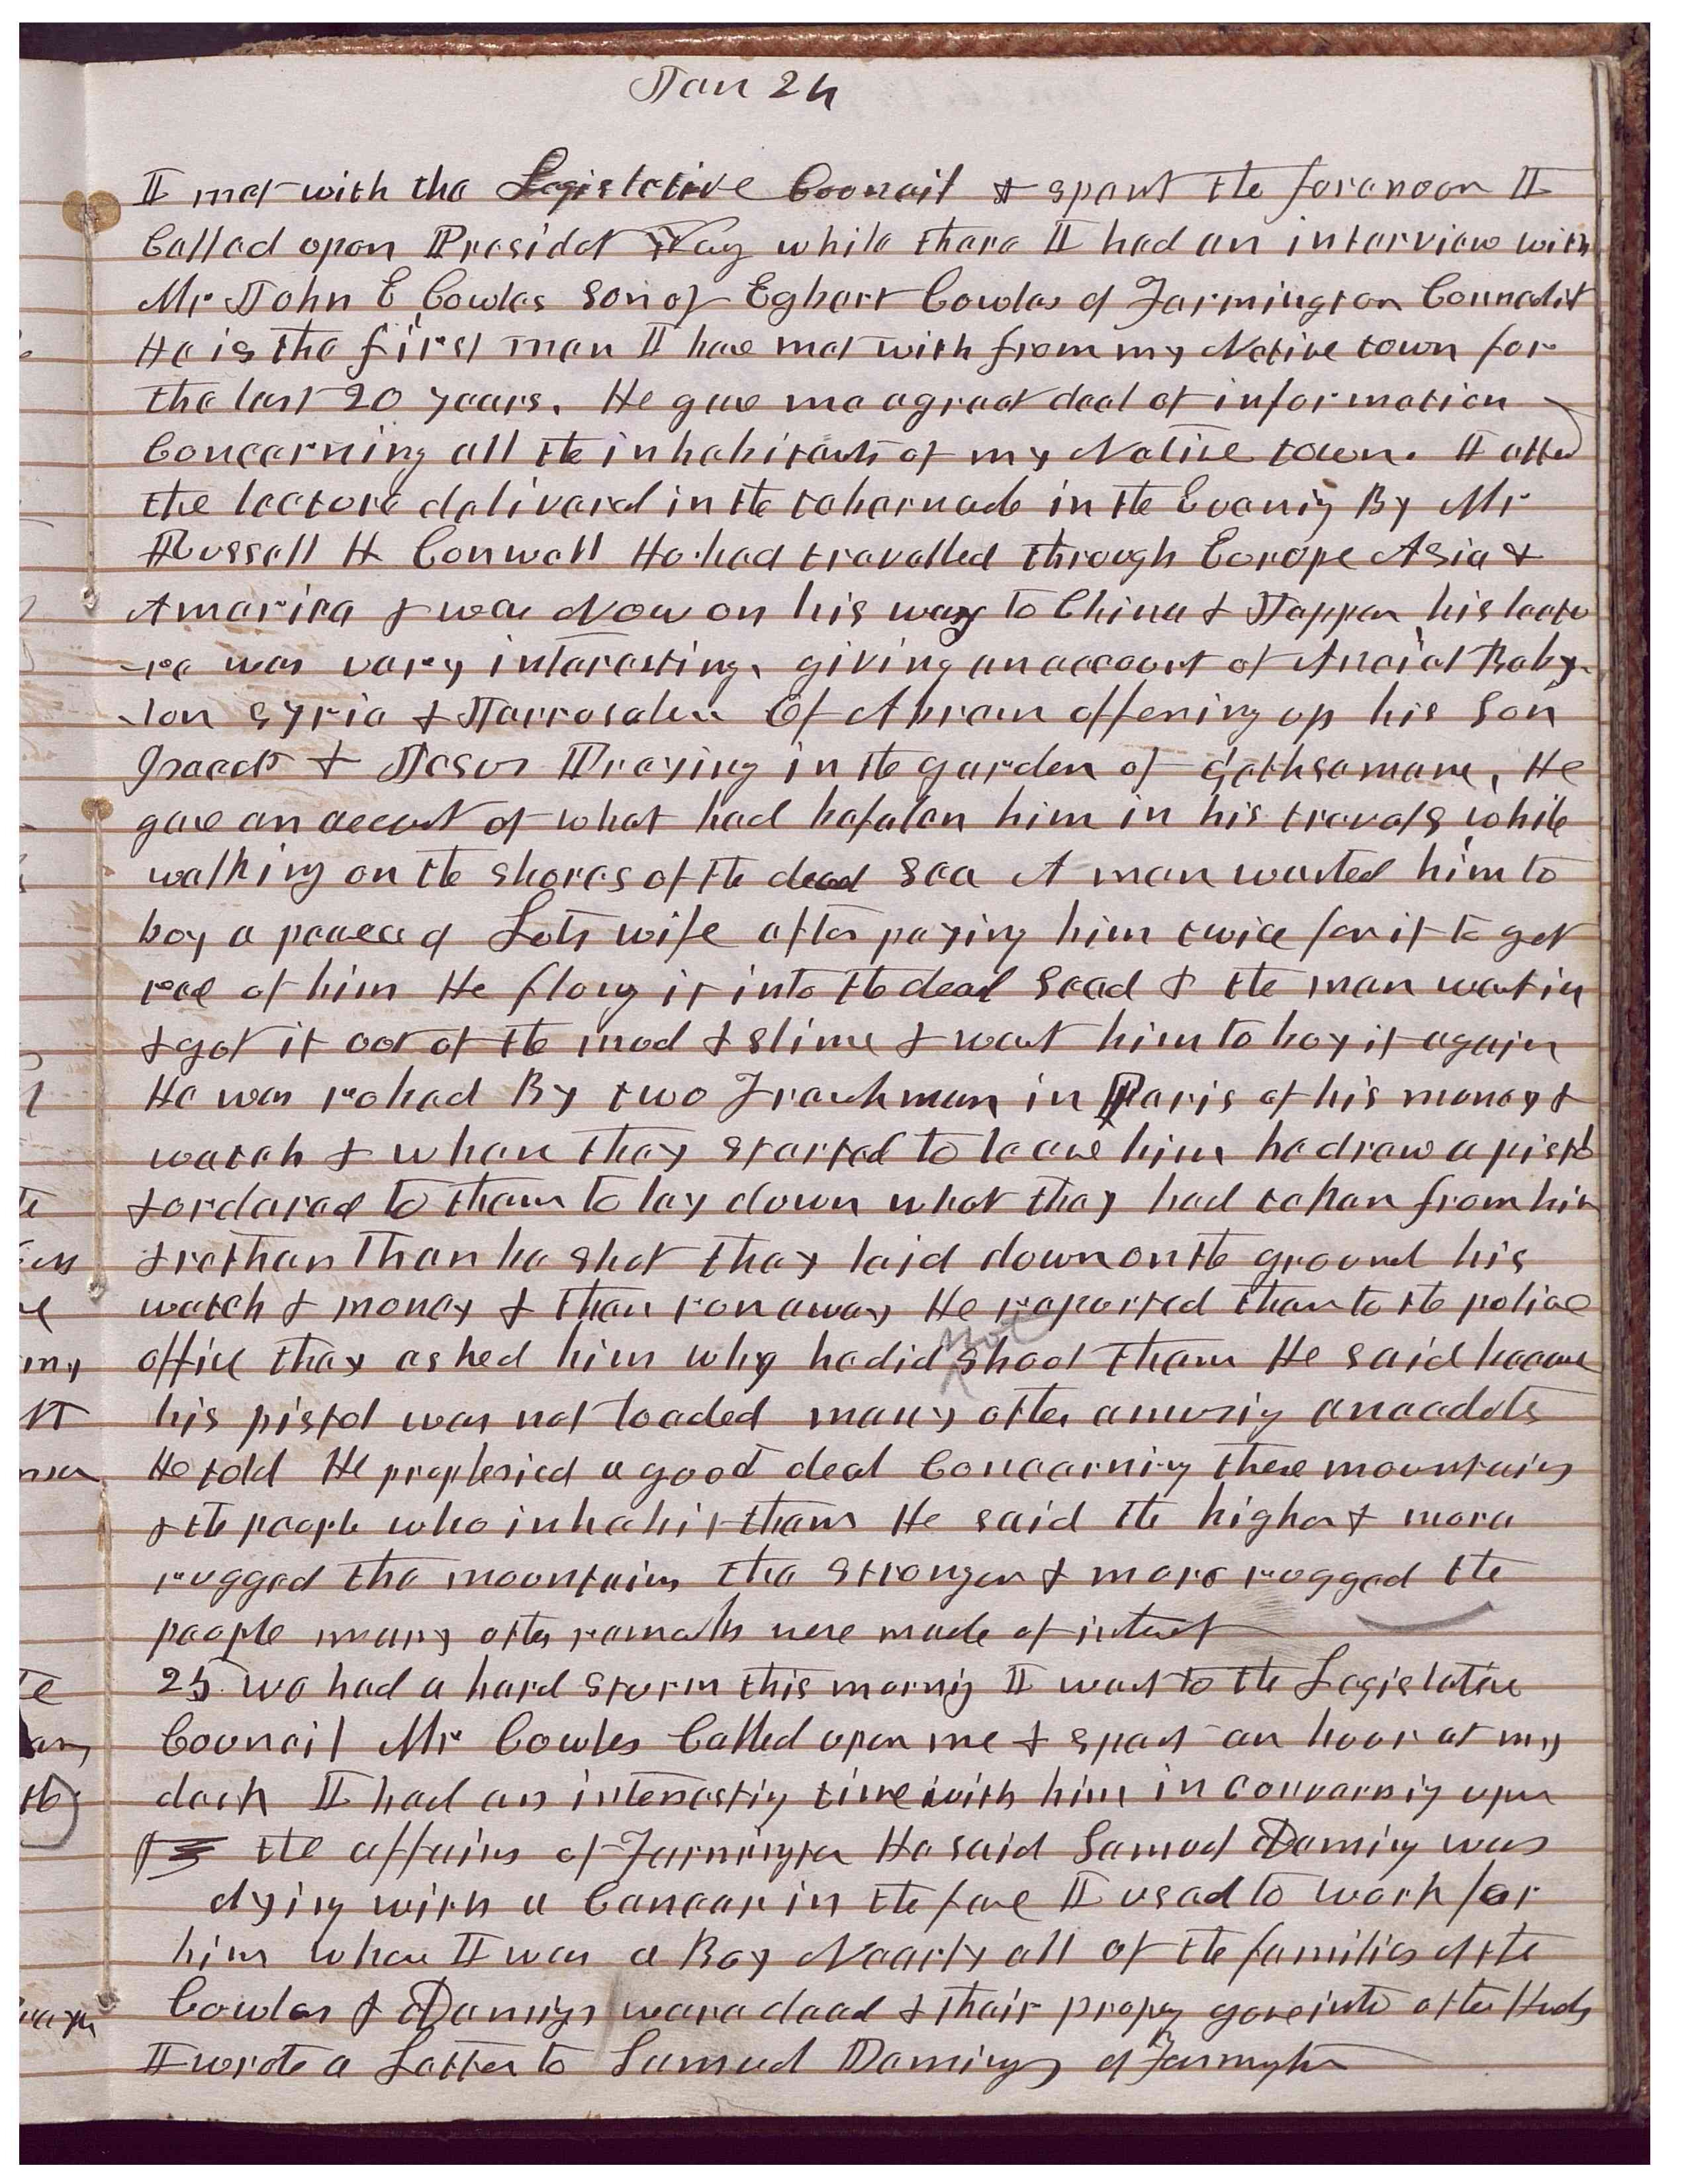 Jan 24
I met with the Legislative Council & spent the forenoon I
Called upon Presidet Yong while there I had an interview with
Mr John E Cowles Son of Egbert Cowles of Farmington Connedict
He is the first man I have met with from my Native town for
the last 20 years. He gave me a great deal of information
Concerning all the inhabitants of my Native town. I atted
the lecture deliverd in the tabernacle in the Evenig By Mr
Russell H Conwell He had travelled through Europe Asia &
America & was Now on his way to China & Jappan his lectu
-re was very interesting, giving an account of Anciet Baby-
-lon Syria & Jarrosalem Of Abram offering up his Son
Isaack & Jesus Praying in the garden of gethsamane, He
gave an accont of what had befalen him in his travels while
walking on the shores of the dead Sea A man wanted him to
buy a peace of Lots wife after paying him twice for it to get
red of him He flong it into the dead Sead & the man went in
& got it out of the mud & slime & want him to buy it again
He was robed By two Frenchman in Paris of his money &
watch & when they started to leave him he drew a pistol
& ordered to them to lay down what they had taken from him
& rethan than be shot they laid down on the ground his
watch & money & then run away He reported them to the police
office they asked him why he did not shoot them He said because
his pistol was not loaded many other amusig anecdots
He told He prophesied a good deal Concerning these mountains
& the people who inhabit them He said the higher & more
rugged the mountains the stronger & more rugged the
people many other remarks were made of intrest
25 We had a hard storm this mornig I went to the Legislative
Council Mr Cowles Called upon me & spent an hour at my
desk I had an interestig time with him in conversig upon
the affairs of Farmington He said Samuel Deming was
dying with a Cancer in the face I used to work for
him when I was a Boy Nearly all of the families of the
Cowles & Demigs were dead & their propey gone into other Hands
I wrote a Letter to Samuel Deming of Farmington